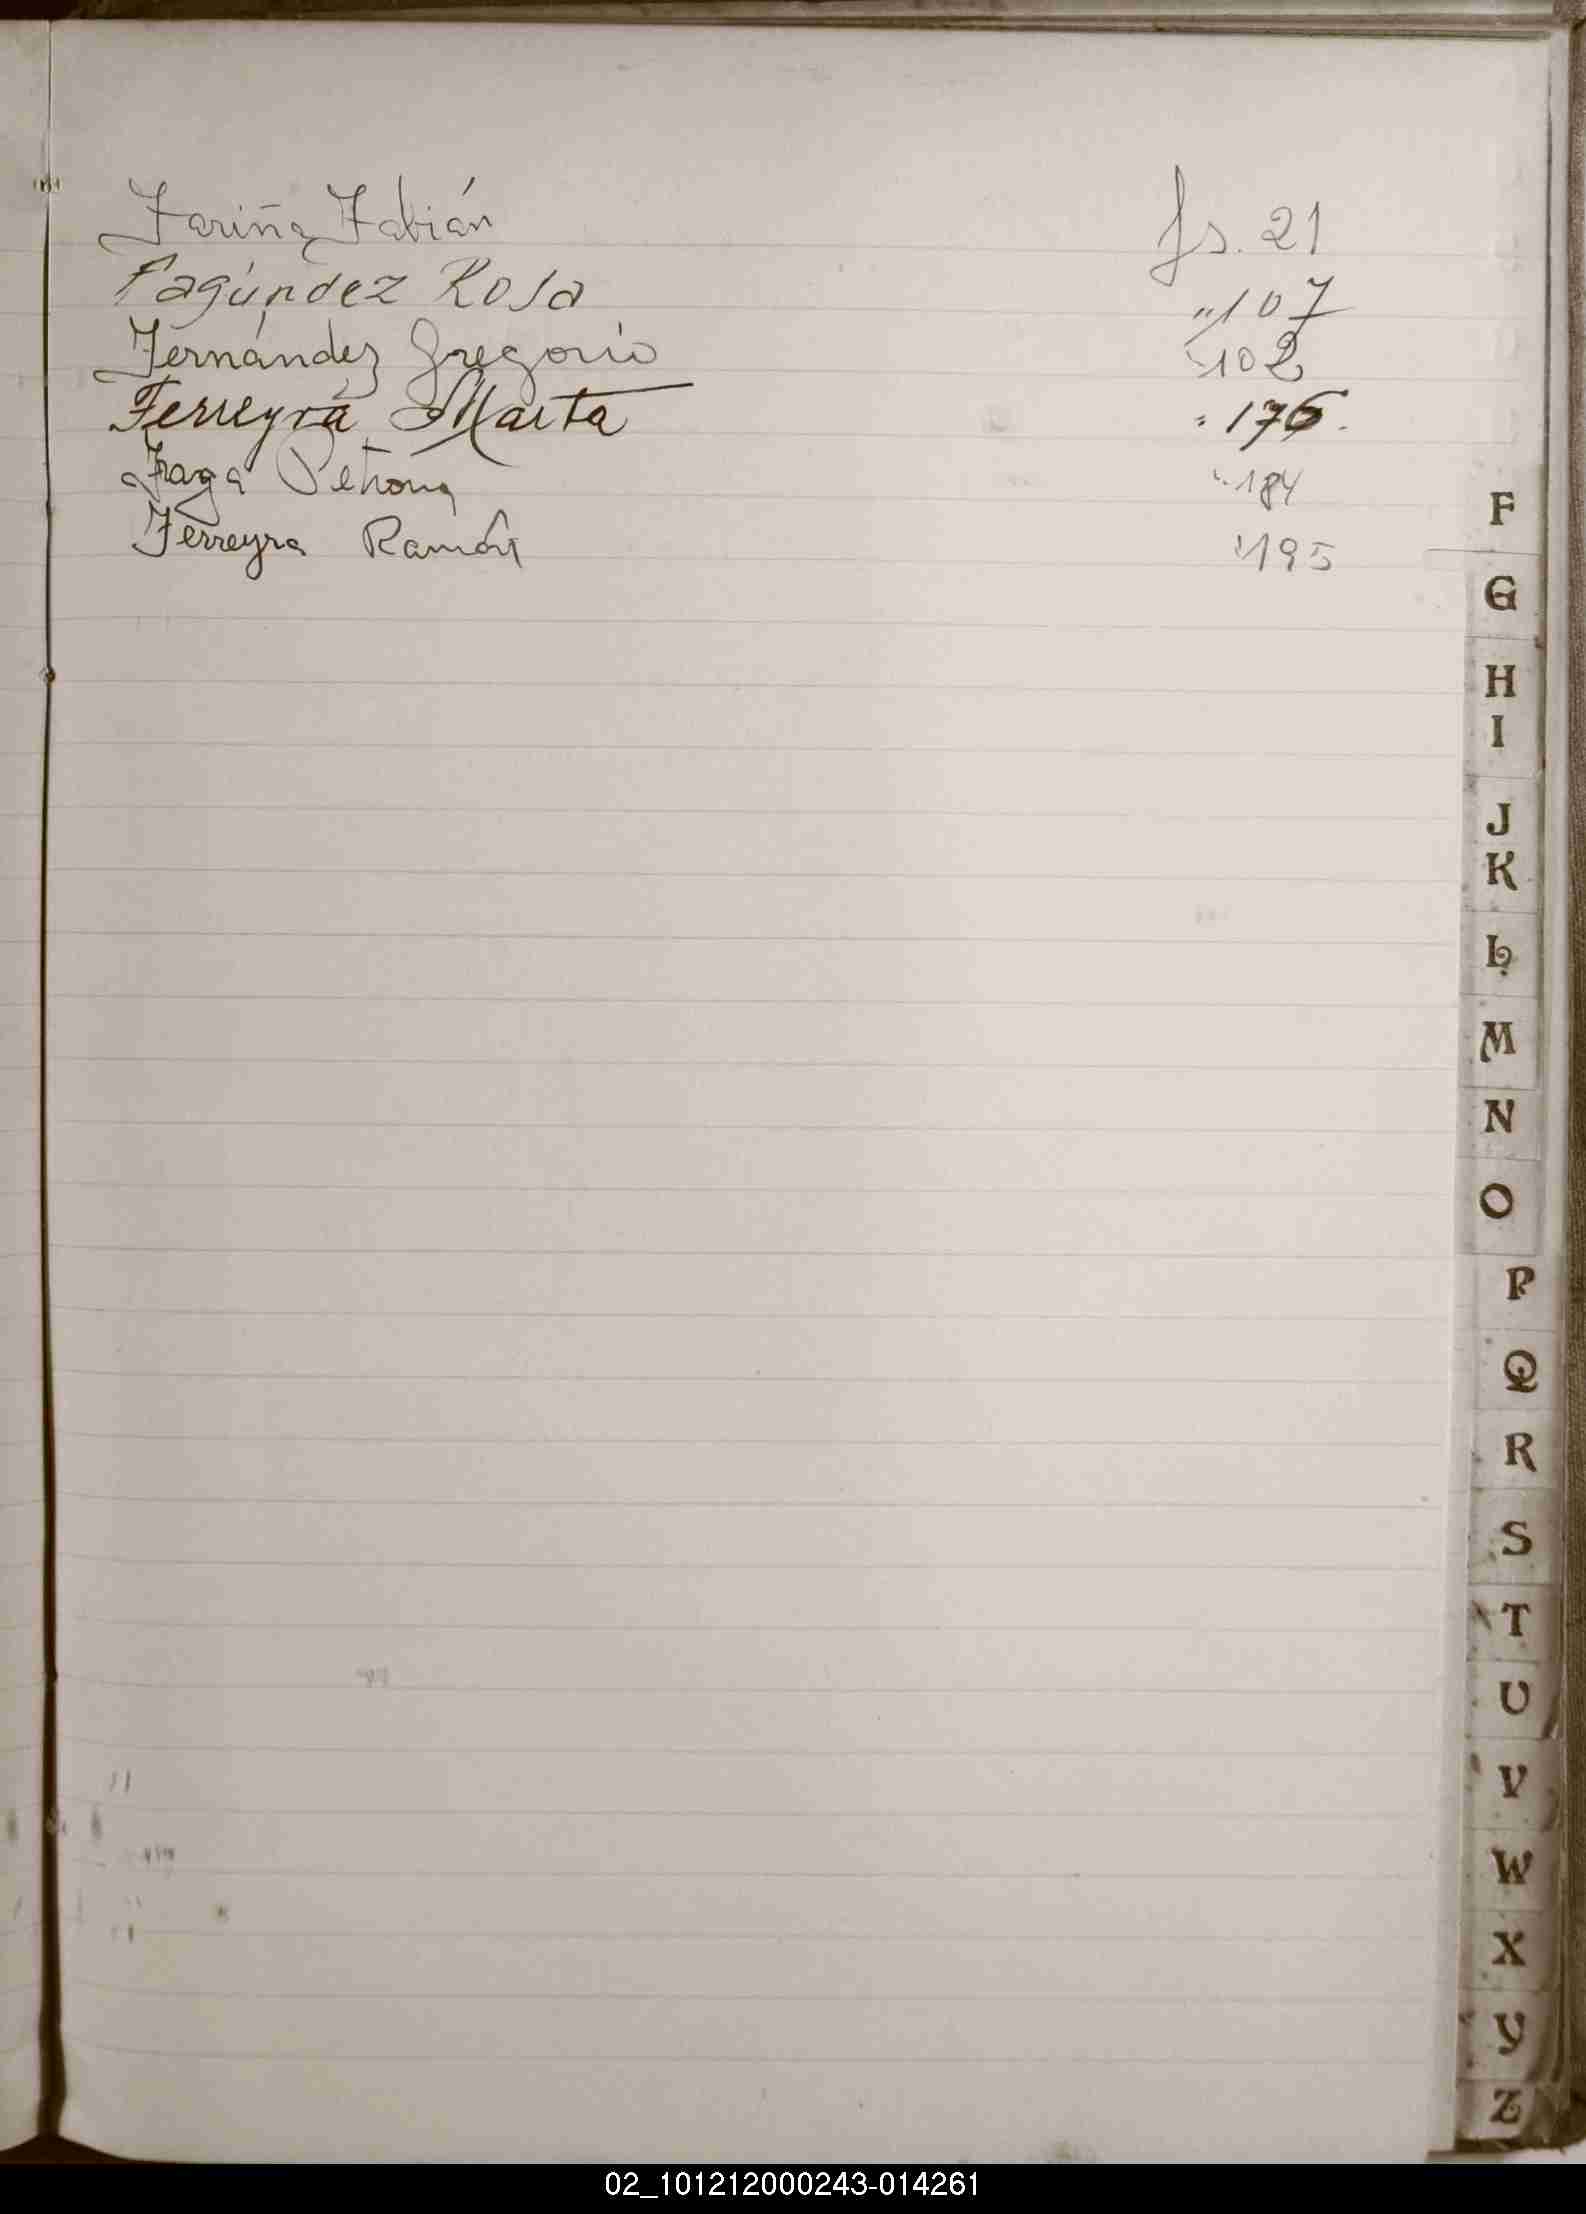 Fariña Fabián fs. 21
Fagúndez Rosa " 107
Fernández Gregorio " 102
Ferreyra Marta " 176.
Fraga Petrona " 184
Ferreyra Ramón " 195
F
G
H
I
J
K
L
M
N
O
P
Q
R
S
T
U
V
W
X
Y
Z
02_101212000243-014261